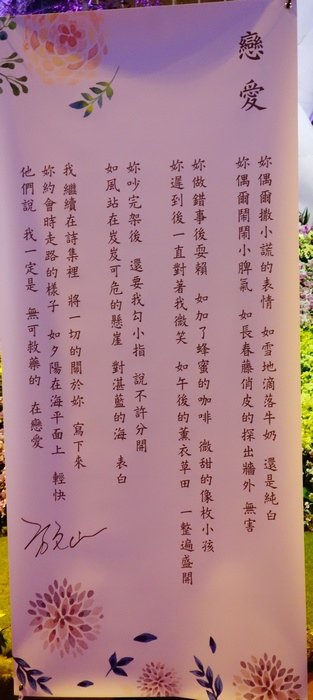 戀愛
妳偶爾撒小謊的表情　如雪地滴落牛奶　還是純白
妳偶爾鬧鬧小脾氣　如長春藤俏皮的探出牆外　無害
妳做錯事後耍賴　如加了蜂蜜的咖啡　微甜的像枚小孩
妳遲到後一直對著我微笑　如午後的薰衣草田　一整遍盛開
妳吵完架後　還要我勾小指　說不許分開
如風站在岌岌可危的懸崖　對湛藍的海　表白
我繼續在詩集裡　將一切的關於妳　寫下來
妳約會時走路的樣子　如夕陽在海平面上　輕快
他們說　我一定是　無可救藥的　在戀愛